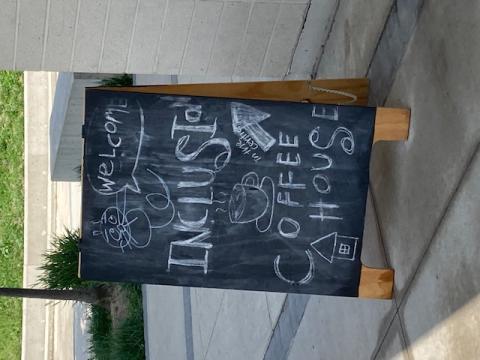 WELCOME
INCLUSION
in the
COFFEE
HOUSE